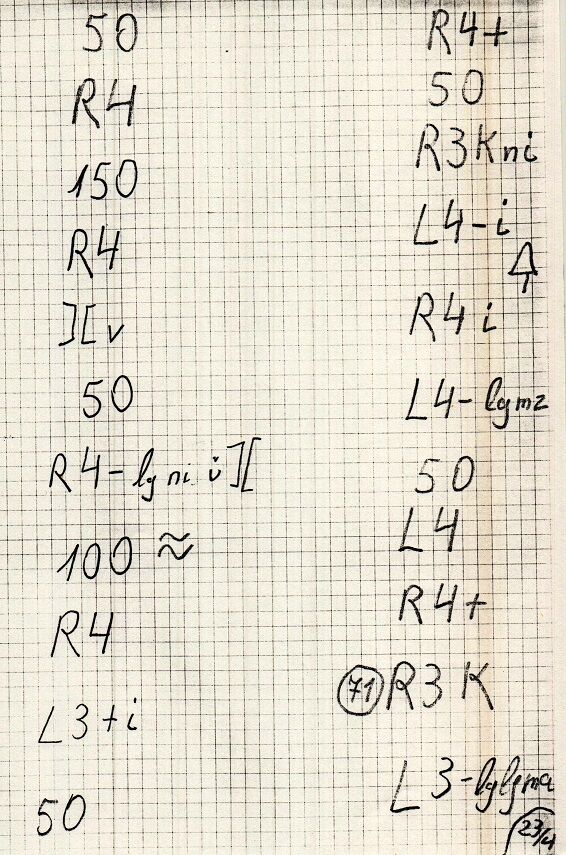 50
R4
150
R4
][ v
50
R4- lg ni i ][
100 ≈
R4
L3+i
50
R4+
50
R3K ni
L4-i
R4 i
L4- lg mz
50
L4
R4+
71 R3 K
L3- lg lg ma
23/4